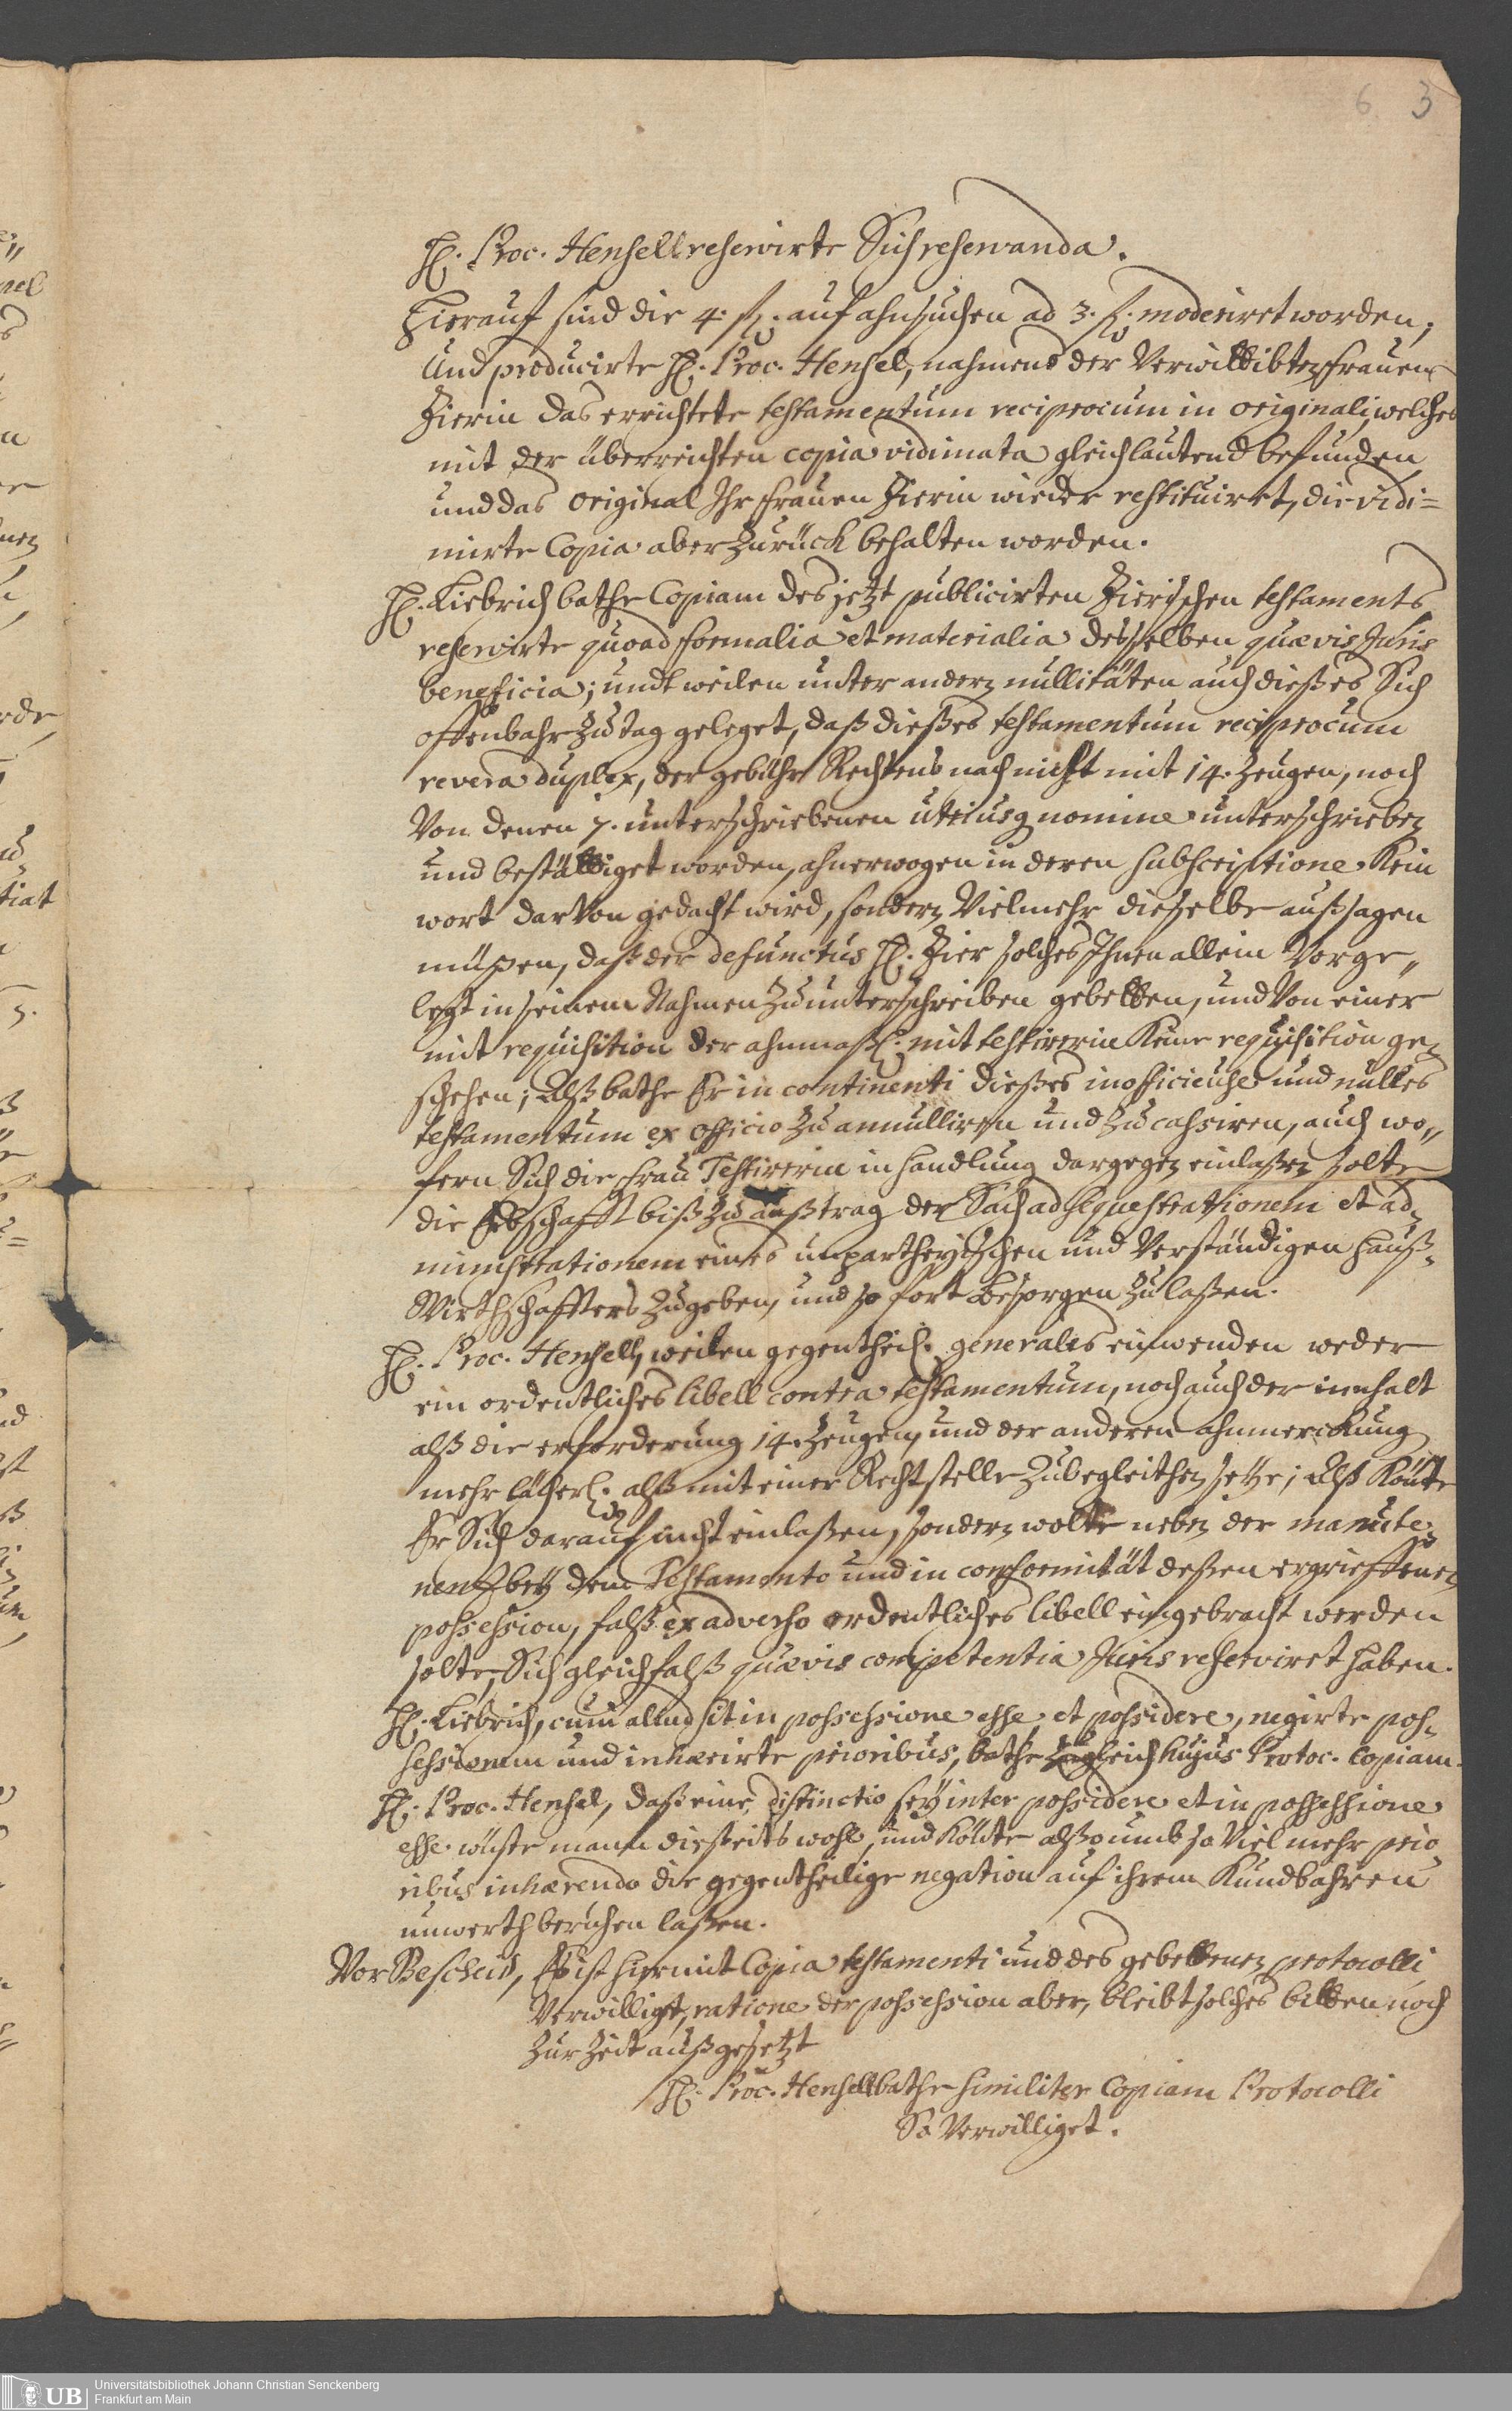 6 3
H. Proc. Hensell reservirte Sich reservanda.
Hierauf sind die 4. fl. auf ahnsuchen ad 3. fl. moderiret worden,
Und producirte H. Proc. Hensel, nahmens der Verwittibten frauen
Zierin das errichtete testamentum reciprocum in originali, welches
mit der überreichten copia vidimata gleichlautend befunden
und das original Ihr frauen Zierin wieder restituiret, die vidi=
mirte Copia aber zurück behalten worden.
H. Liebrich bathe Copiam des jetzt publicirten Zierischen testaments
reservirte quoad formalia et materialia desselben quævis Juris
beneficia; undt weilen unter andern nullitäten auch dießes Sich
offenbahr zu tag geleget, daß dießes testamentum reciprocum
revera duplex, der gebühr Rechtens nach nicht mit 14. Zeugen, noch
Von denen 7. unterschriebenen utriusq nomine unterschrieben
und bestättiget worden, ahnerwogen in deren subscriptione Kein
wort darVon gedacht wird, sondern Vielmehr dieselbe außsagen
müßen, daß der defunctus H. Zier solches Ihnen allein Vorge„
legt in seinem Nahmen zu unterschreiben gebetten, und Von einer
mit requisition der ahnmaßl. mit testirerin Keine requisition ge„
schehen; Alß bathe Er in continenti dießes inofficieuse und nulles
testamentum ex officio zu annulliren und zu cassiren, auch wo„
fern Sich die frau Testirerin in handlung dargegen einlaßen solte
die Erbschafft biß zu außtrag der Sach ad sequestrationem et ad„
ministrationem eines unpartheyischen und Verständigen hauß„
Wirthschaffters zugeben, und so fort besorgen zu laßen.
H. Proc. Hensell, weilen gegentheil. generales einwenden weder
ein ordentliches libell contra testamentum, noch auch der innhalt
alß die erforderung 14. Zeugen, und der anderen ahnmerckung
mehr lächerl. alß mit einer Rechtstelle zubegleithen seye; Alß Könte
Er Sich darauf nicht einlaßen, sondern wolte neben der manute„
nenz bey dem Testamento und in conformität deßen ergrieffenen
possession, falß ex adverso ordentliches libell eingebracht werden
solte, Sich gleichfalß quævis competentia Juris reserviret haben.
H. Liebrich, cum aliud sit in possessione esse, et possidere, negirte pos„
sessionem und inhærirte prioribus, bathe zugleich hujus Protoc. Copiam.
H. Proc. Hensel, daß eine distinctio sey inter possidere et in possessione
esse wüste mann dießeits wohl, und Könte alßo umb so Viel mehr prio„
ribus inhærendo die gegentheilige negation auf ihrem Kundbahren
unwerth beruhen laßen.
Vor Bescheid, Es ist hiermit Copia testamenti und des gebettenen protocolli
Verwilliget, ratione der possession aber, bleibt solches bitten noch
zur Zeit außgesetzt
H. Proc. Hensell bathe similiter Copiam Protocolli
So Verwilliget.
UB Universitätsbibliothek Johann Christian Senckenberg
Frankfurt am Main